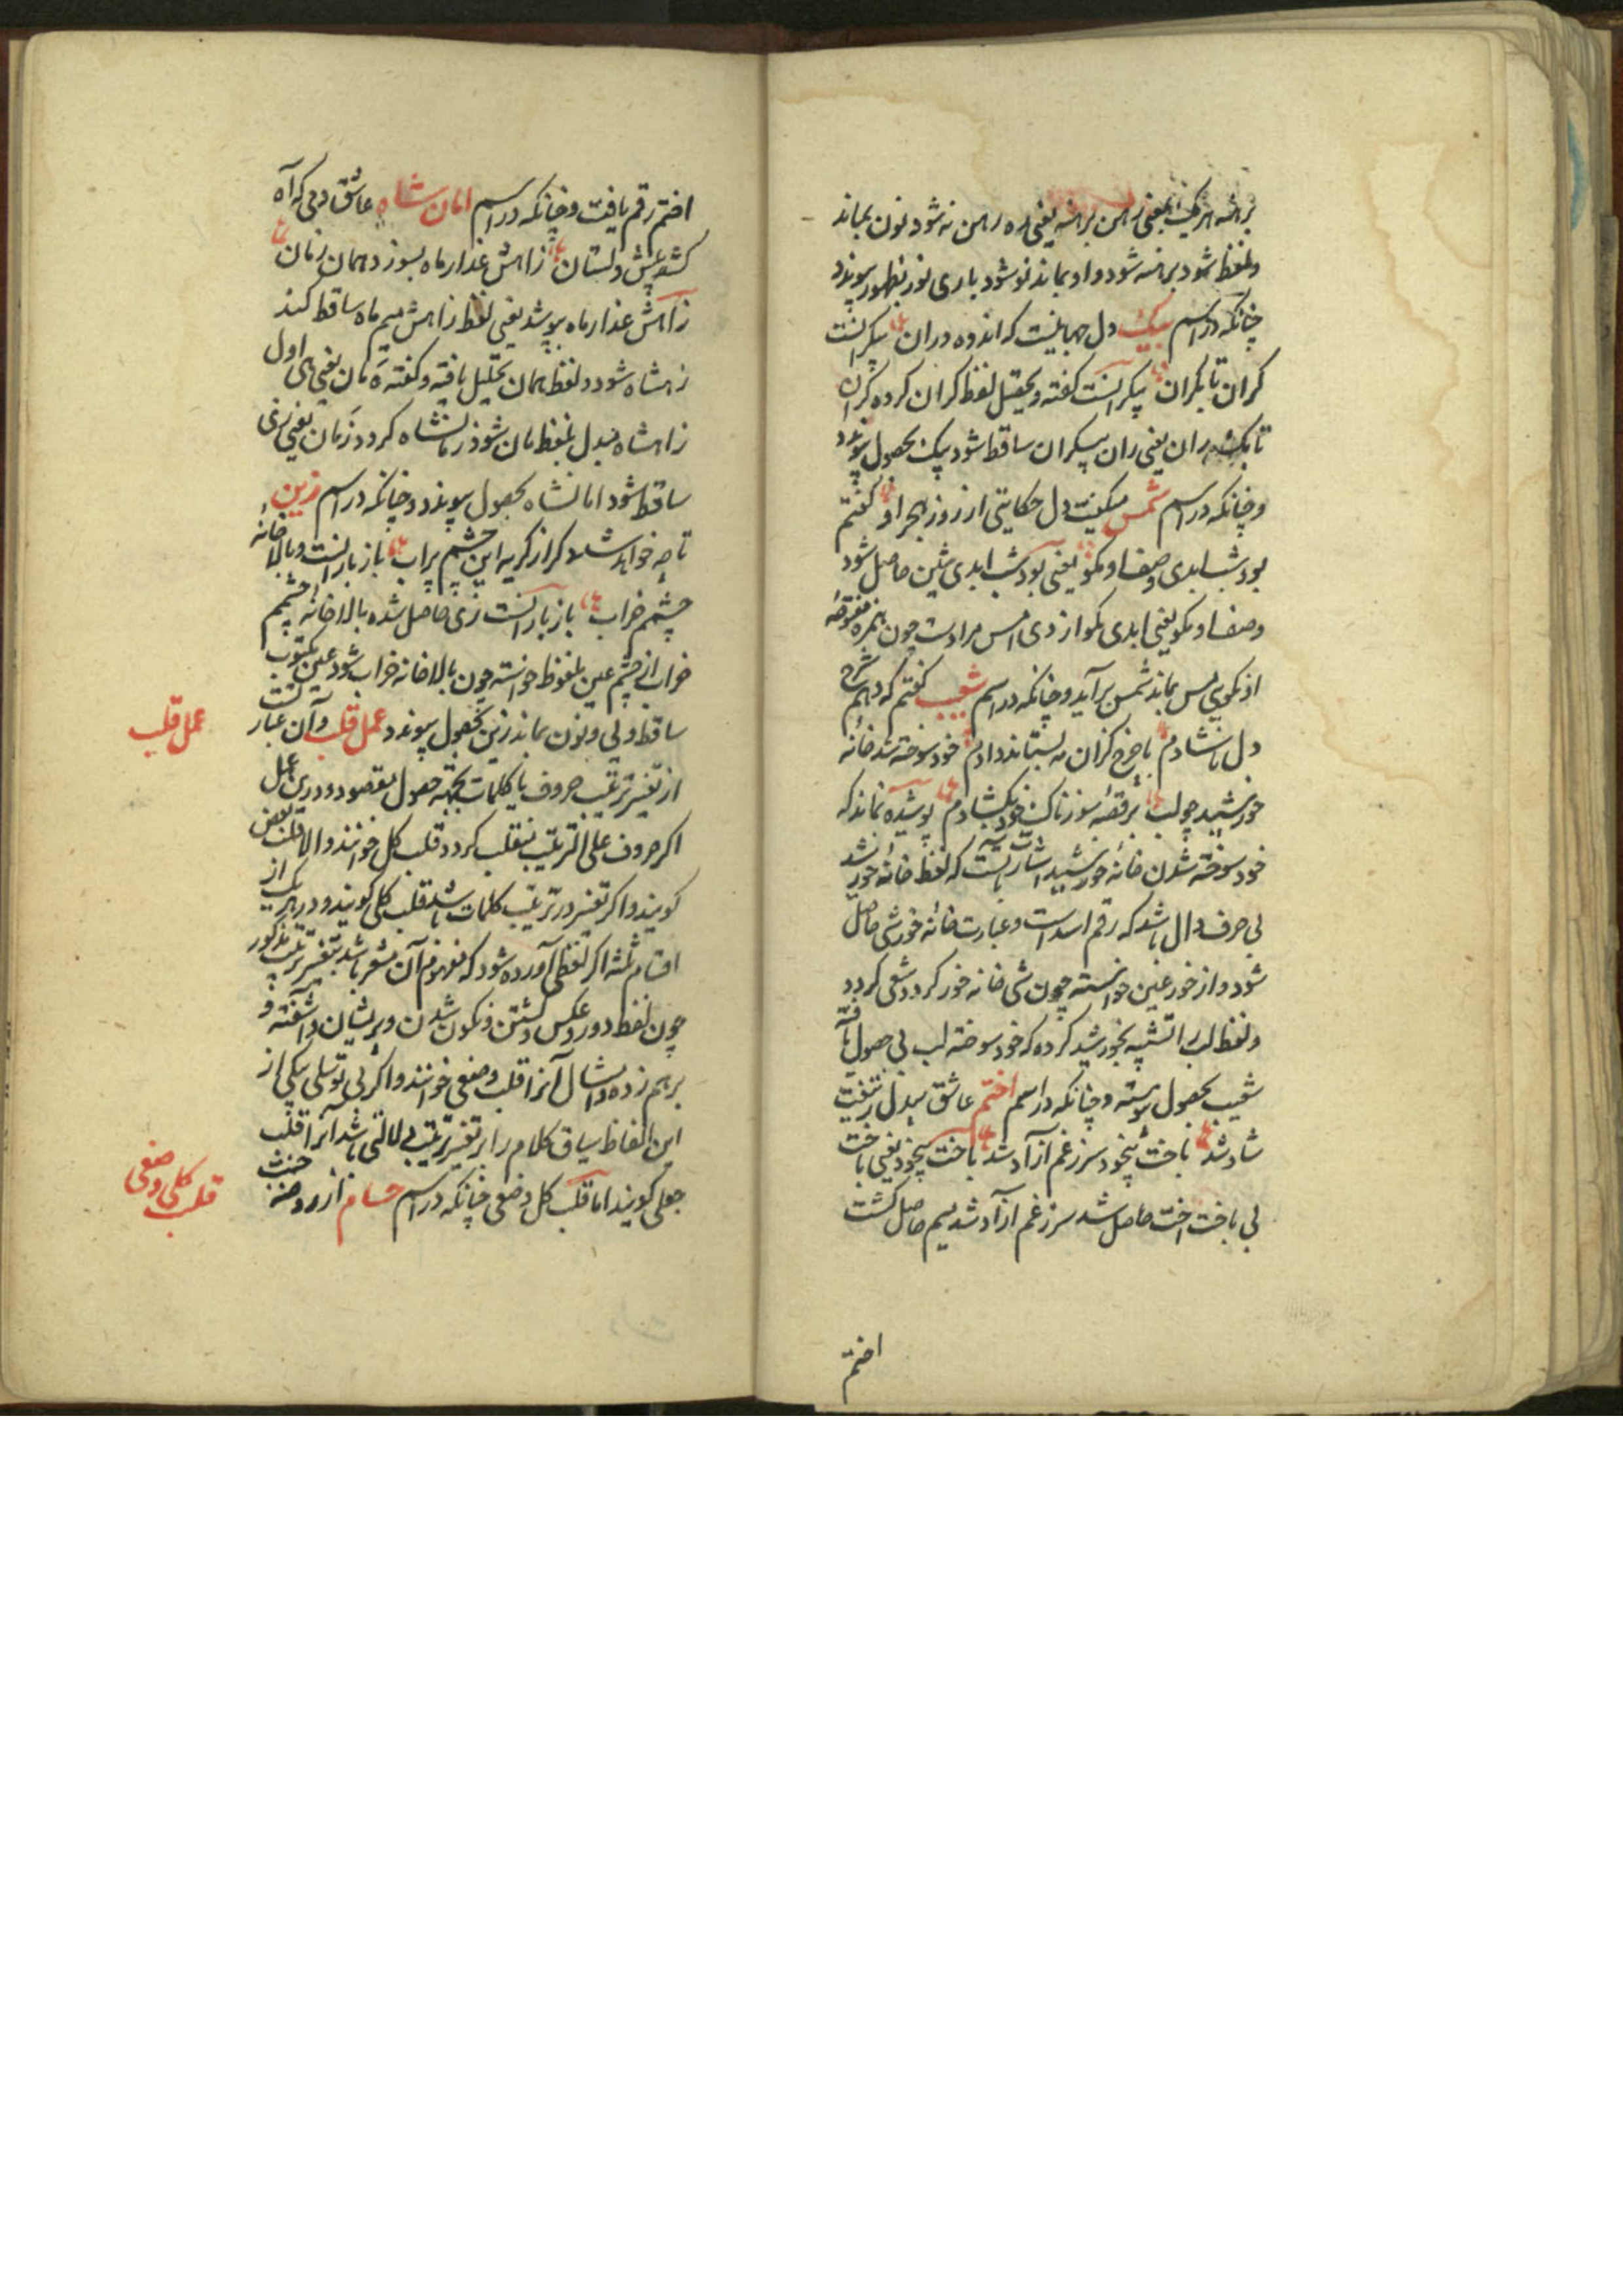 برهنه هر یک یعنی رهن برهنه یعنی ره رهن نه شود نون بماند
ولفظ شود برهنه شود واو بماند نو شود باری نور بظهور پیوندد
چنانکه در اسم بیک دل جهانیست که اندوه دران بیکرانست
کران تا بکران پیکرانست گفته وبحقیقت لفظ کران کرده کران
تا بک ران یعنی ران پیکران ساقط شود پیک بحصول پیوندد
وچنانکه در اسم شمس میگفت دل حکایتی از روز هجر او گفتم
بود شب ابدی وصف او مگو یعنی بود شب ابدی شین حاصل شود
وصف او مگو یعنی ابدی مگو از دی امس مرادست چون همزه مفتوحه
از گوی مس بماند شمس برآید وچنانکه در اسم شعیب گفتم که دهم شرح
دل ناشادم با چرخ کزان مه بستاند دادم خود سوخته شد خانه
خورشید چو لب بر قصه سوزناک خود بگشادم پوشیده نماند که
خود سوخته شدن خانه خورشید اشارت بآنست که لفظ خانه خورشید
بی حرف دال باشد که رقم اسد است وعبارت خانه خورشی حاصل
شود واز خور عین خواسته چون شی خانه خور گردد شعی گردد
ولفظ لب را تشبیه بخورشید کرده که خود سوخته لب بی حصول یافته
شعیب بحصول پیوسته وچنانکه در اسم اختم عاشق بیدل ز
شاد شد باخت بیخود سر ز غم آزاد شد باخت بیخود یعنی باخت
بی باخت اخت حاصل شد سر ز غم آزاد شد میم حاصل گشت
اختم
اختم رقم یافت وچنانکه در اسم امان شاه عاشق دمی که آه
کشد پیش دلستان ز آهش عذار ماه بسوزد همان زمان
ز آهش عذار ماه بپوشد یعنی لفظ زاهش میم ماه ساقط کند
زاهشاه شود ولفظ همان تحلیل یافته وگفته ه مان یعنی های اول
زاهشاه مبدل بلفظ مان شود زمانشاه گردد زمان یعنی زی
ساقط شود امانشاه بحصول پیوندد وچنانکه در اسم زین
تا چه خواهد شد دگر از گریه این چشم پر آب باز بارانست وبالاخانه
چشمم خراب باز بارانست زی حاصل شده بالاخانه چشمم
خراب از چشم عین ملفوظ خواسته چون بالاخانه خراب شود عین مکتوب
ساقط ویی ونون بماند زین بحصول پیوندد عمل قلب وآن عبارتست
از تغییر ترتیب حروف یا کلمات بجهة حصول مقصود ودرین عمل
اگر حروف علی الترتیب منقلب گردد قلب کل خوانند والا قلب بعض
گویند واگر تغییر در ترتیب کلمات باشد قلب کلی گویند ودر هر یک از
اقسام ثلثه اگر لفظی آورده شود که مفهوم آن مشعر باشد بتغییر ترتیب مذکور
چون لفظ دور وعکس وگشتن ونگون شدن وپریشان وآشفته و
برهم زده وامثال آنرا قلب وضعی خوانند واگر بی توسل یکی از
این الفاظ سیاق کلام را بر تغییر ترتیب دلالتی باشد آنرا قلب
جعلی گویند اما قلب کل وضعی چنانکه در اسم حسام از روضه جنت
عمل قلب
قلب کلی وضعی